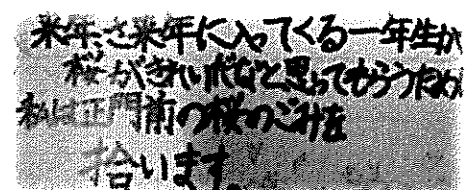 来年、さ来年に入ってくる一年生が
桜がきれいだなと思ってもらうため
私は正門前の桜のごみを
拾います。